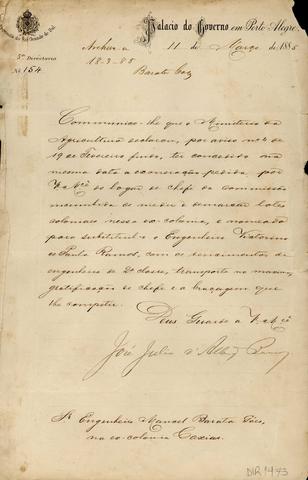 Palacio do Governo em Porto Alegre,
11 de Março de 1885
3ª Directoria
Nº 154
Archive-se
18-3-85
Barata Góes
Communico-lhe que o Ministerio da
Agricultura declarou, por aviso nº 4 de
19 de Fevereiro findo, ter concedido na
mesma data a exoneração pedida por
Vmcê do logar de chefe da commissão
incumbida de medir e demarcar lotes
coloniaes nessa ex-colonia, e nomeado
para substituil-o o Engenheiro Victorino
de Paula Ramos, com os vencimentos de
engenheiro de 2ª classe, transporte na
gratificação de chefe e a bagagem que
lhe competir.
Deus Guarde a Vmcê
José Julio d'Alb. Barros
Sr. Engenheiro Manoel Barata Góes,
na ex-colonia Caxias.
DIR 1493